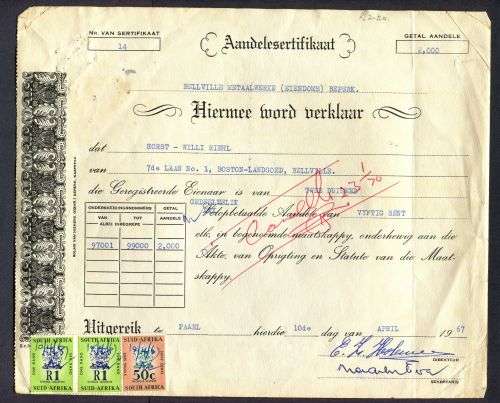 NR. VAN SERTIFIKAAT
14
Aandelesertifikaat
GETAL AANDELE
2,000
BELLVILLE METAALWERKE (EIENDOMS) BEPERK.
Hiermee word verklaar
dat HORST - WILLI RIEHL
van 7de LAAN No. 1, BOSTON-LANDGOED, BELLVILLE.
die Geregistreerde Eienaar is van TWEE DUISEND
ONDERSKEIDINGSNOMMERS
GETAL AANDELE
VAN
TOT
ALBEI INBEGREPE
97001 99000 2,000
Volopbetaalde Aandele van VYFTIG SENT
elk, in bogenoemde maatskappy, onderhewig aan die
Akte, van Oprigting en Statute van die Maat-
skappy.
Cancelled
Uitgereik te PAARL hierdie 10de dag van APRIL 1967
DIREKTEUR
SEKRETARIS
SOUTH AFRICA
R1
SUID-AFRIKA
SOUTH AFRICA
R1
SUID-AFRIKA
SUID-AFRIKA
50c
SOUTH AFRICA